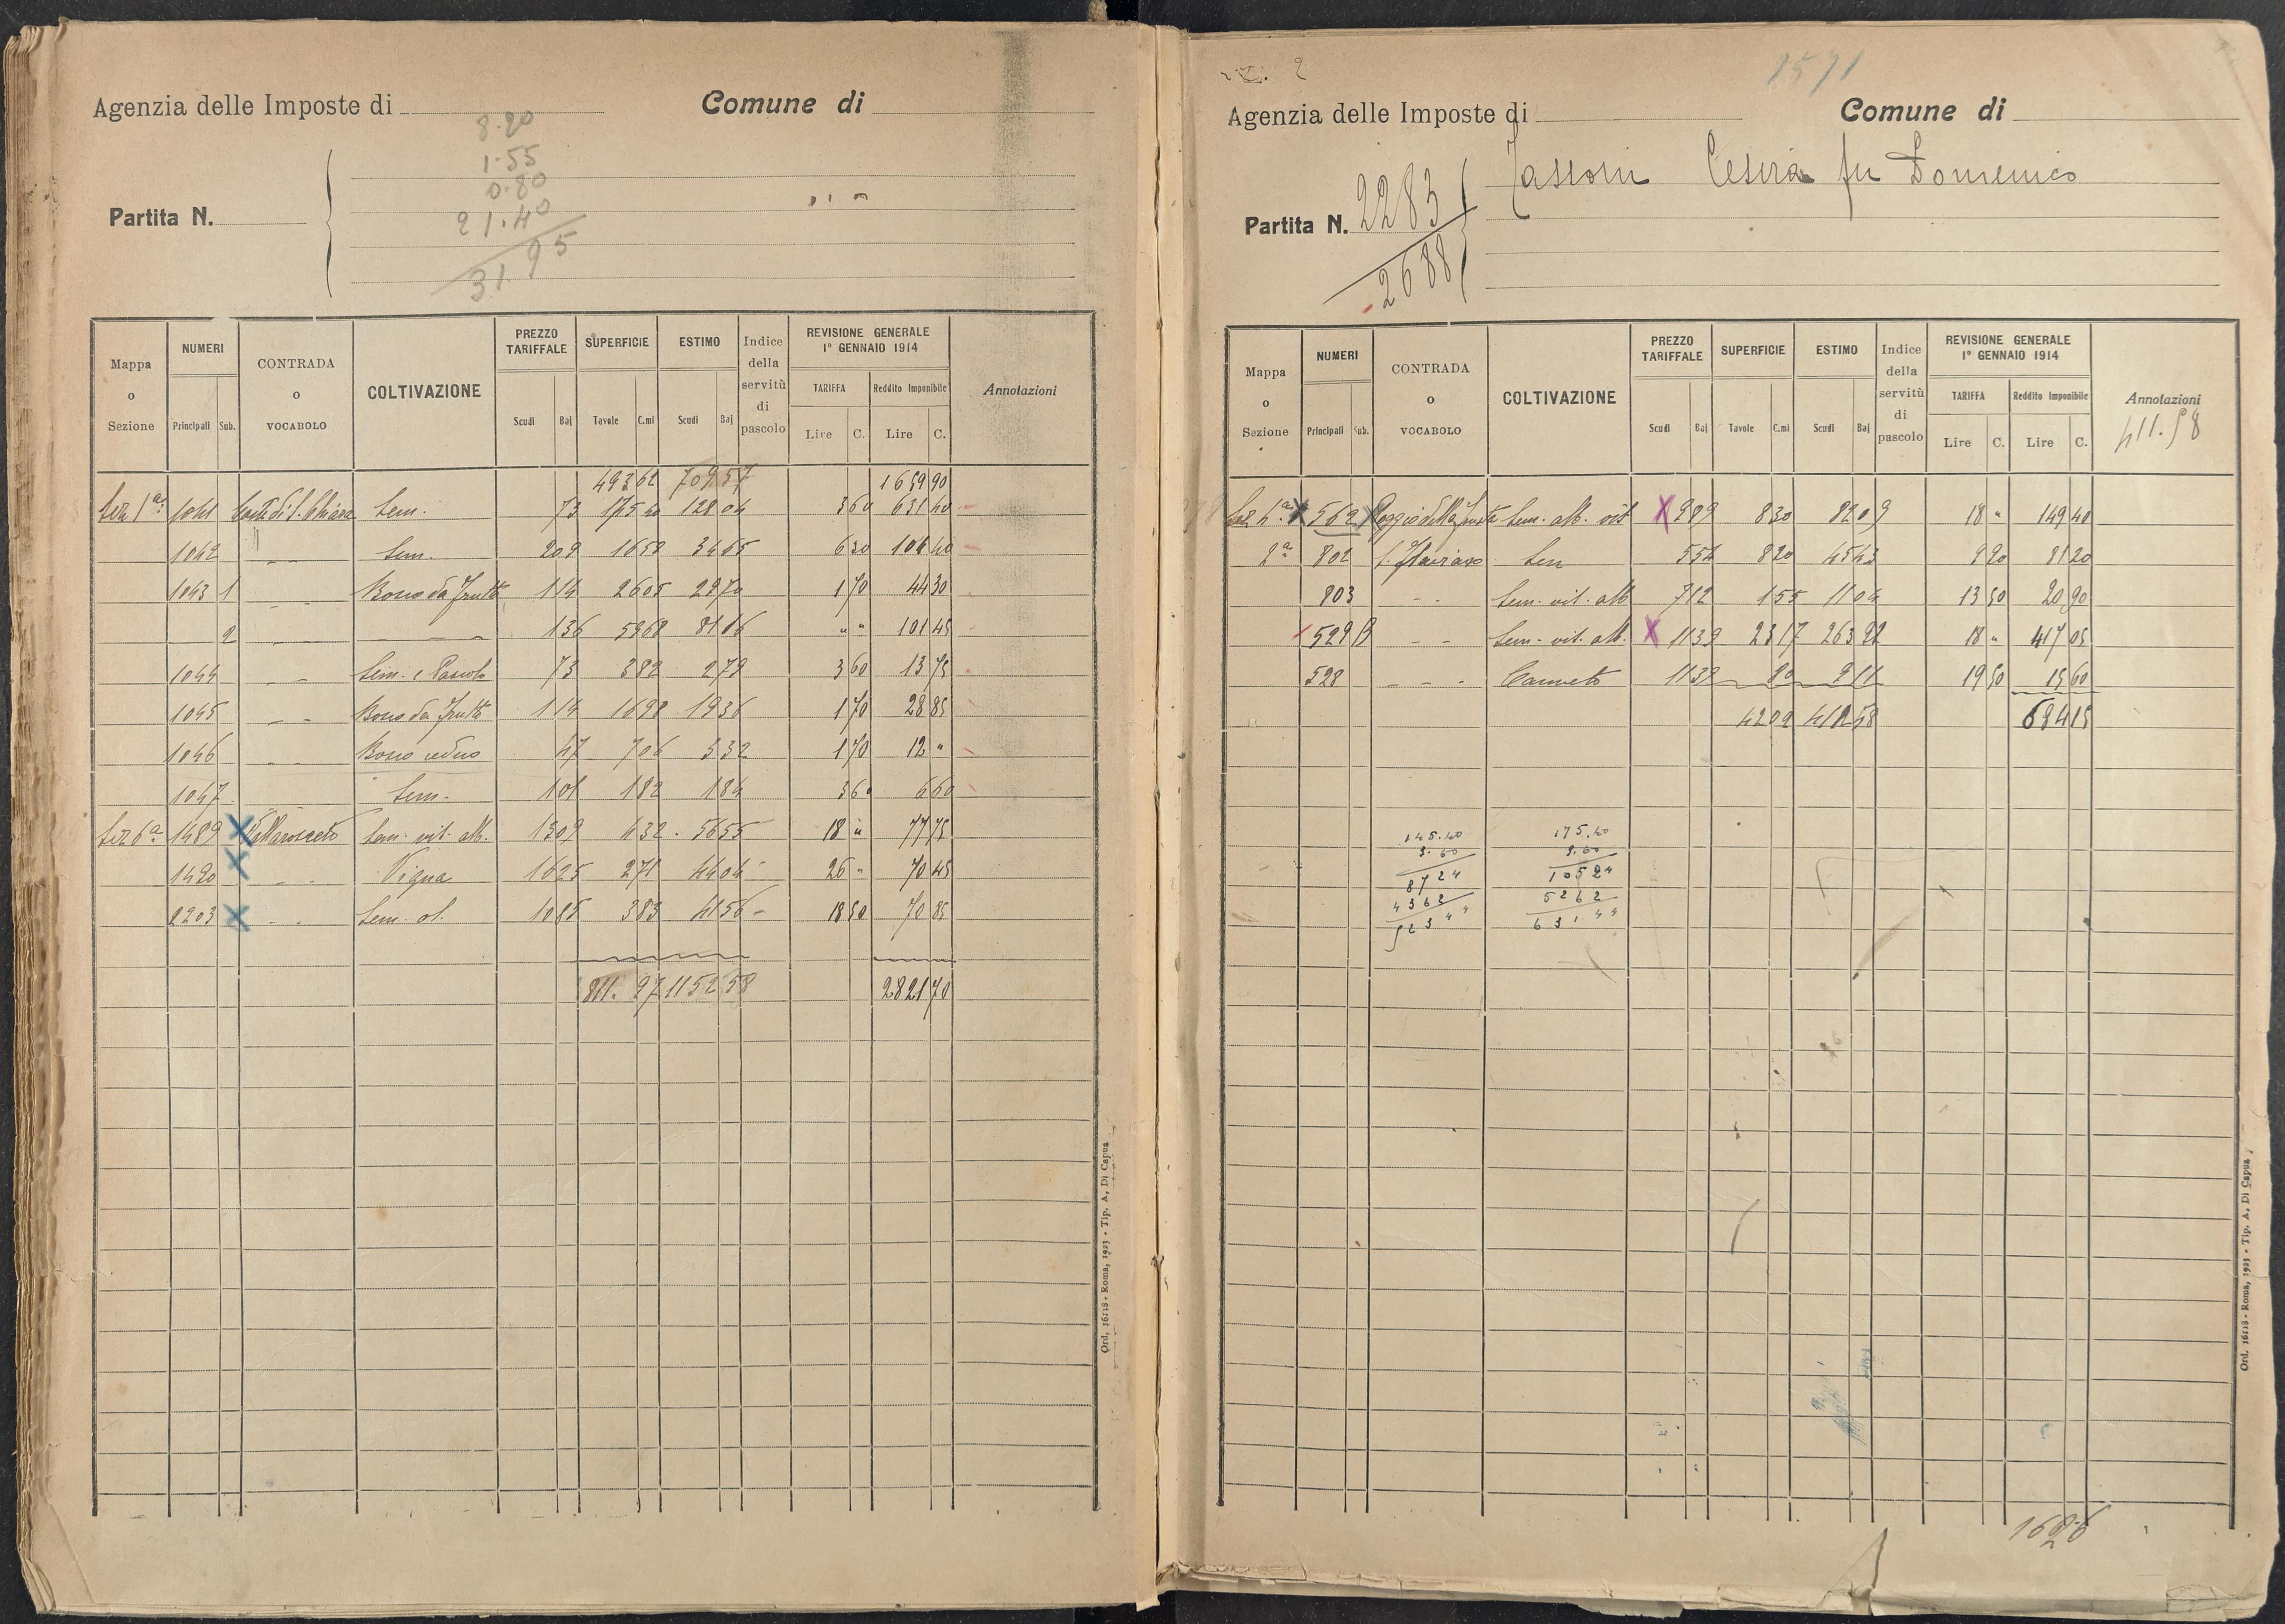 Agenzia delle Imposte di
Comune di
8.20
1.55
0.80
21.40
31.95
Partita N.
Mappa o Sezione
NUMERI
Principali
Sub.
CONTRADA o VOCABOLO
COLTIVAZIONE
PREZZO TARIFFALE
Scudi
Baj
SUPERFICIE
Tavole
C.mi
ESTIMO
Scudi
Baj
Indice della servitù di pascolo
REVISIONE GENERALE
1° GENNAIO 1914
TARIFFA
Lire
C.
Reddito Imponibile
Lire
C.
Annotazioni
493 62 709 57 1659 90
Sez 1a 1041 Coste di S. Chiara Sem. 73 175 40 128 04 3 60 631 40
1042 Sem. 209 16 58 34 65 6 30 104 40
1043 1 Bosco da frutto 114 26 05 29 70 1 70 44 30
2 136 59 68 81 16 " " 101 45
1044 Sem. e Pascolo 73 3 82 2 79 3 60 13 75
1045 Bosco da frutto 114 16 98 19 36 1 70 28 85
1046 Bosco ceduo 47 7 06 3 32 1 70 12 "
1047 Sem. 101 1 82 1 84 3 60 6 60
Sez 6a 1489 Sem. vit. alb. 1309 4 32 56 55 18 " 77 75
1490 Vigna 1625 2 71 44 04 26 " 70 45
2203 Sem. ol. 1085 3 83 41 56 18 50 70 85
811. 97 1152 58 2821 70
Ord. 16118 - Roma, 1923 - Tip. A. Di Capua
2
1571
Agenzia delle Imposte di
Comune di
Partita N. 2283
2688
Tassoni Cesira fu Domenico
Mappa o Sezione
NUMERI
Principali
Sub.
CONTRADA o VOCABOLO
COLTIVAZIONE
PREZZO TARIFFALE
Scudi
Baj
SUPERFICIE
Tavole
C.mi
ESTIMO
Scudi
Baj
Indice della servitù di pascolo
REVISIONE GENERALE
1° GENNAIO 1914
TARIFFA
Lire
C.
Reddito Imponibile
Lire
C.
Annotazioni
411.58
Sez 4a 562 Poggio della Sem. alb. vit 989 8 30 82 09 18 " 149 40
2a 802 Sem 554 8 20 45 43 9 90 81 20
803 Sem. vit. alb 712 1 55 11 04 13 50 20 90
529 B Sem. vit. alb. 1139 23 17 263 92 18 " 417 05
528 Canneto 1139 80 9 11 19 50 15 60
42 02 411 58 684 15
145.40
3.60
8724
4362
52344
175.40
3.60
10524
5262
63144
1626
Ord. 16118 - Roma, 1923 - Tip. A. Di Capua